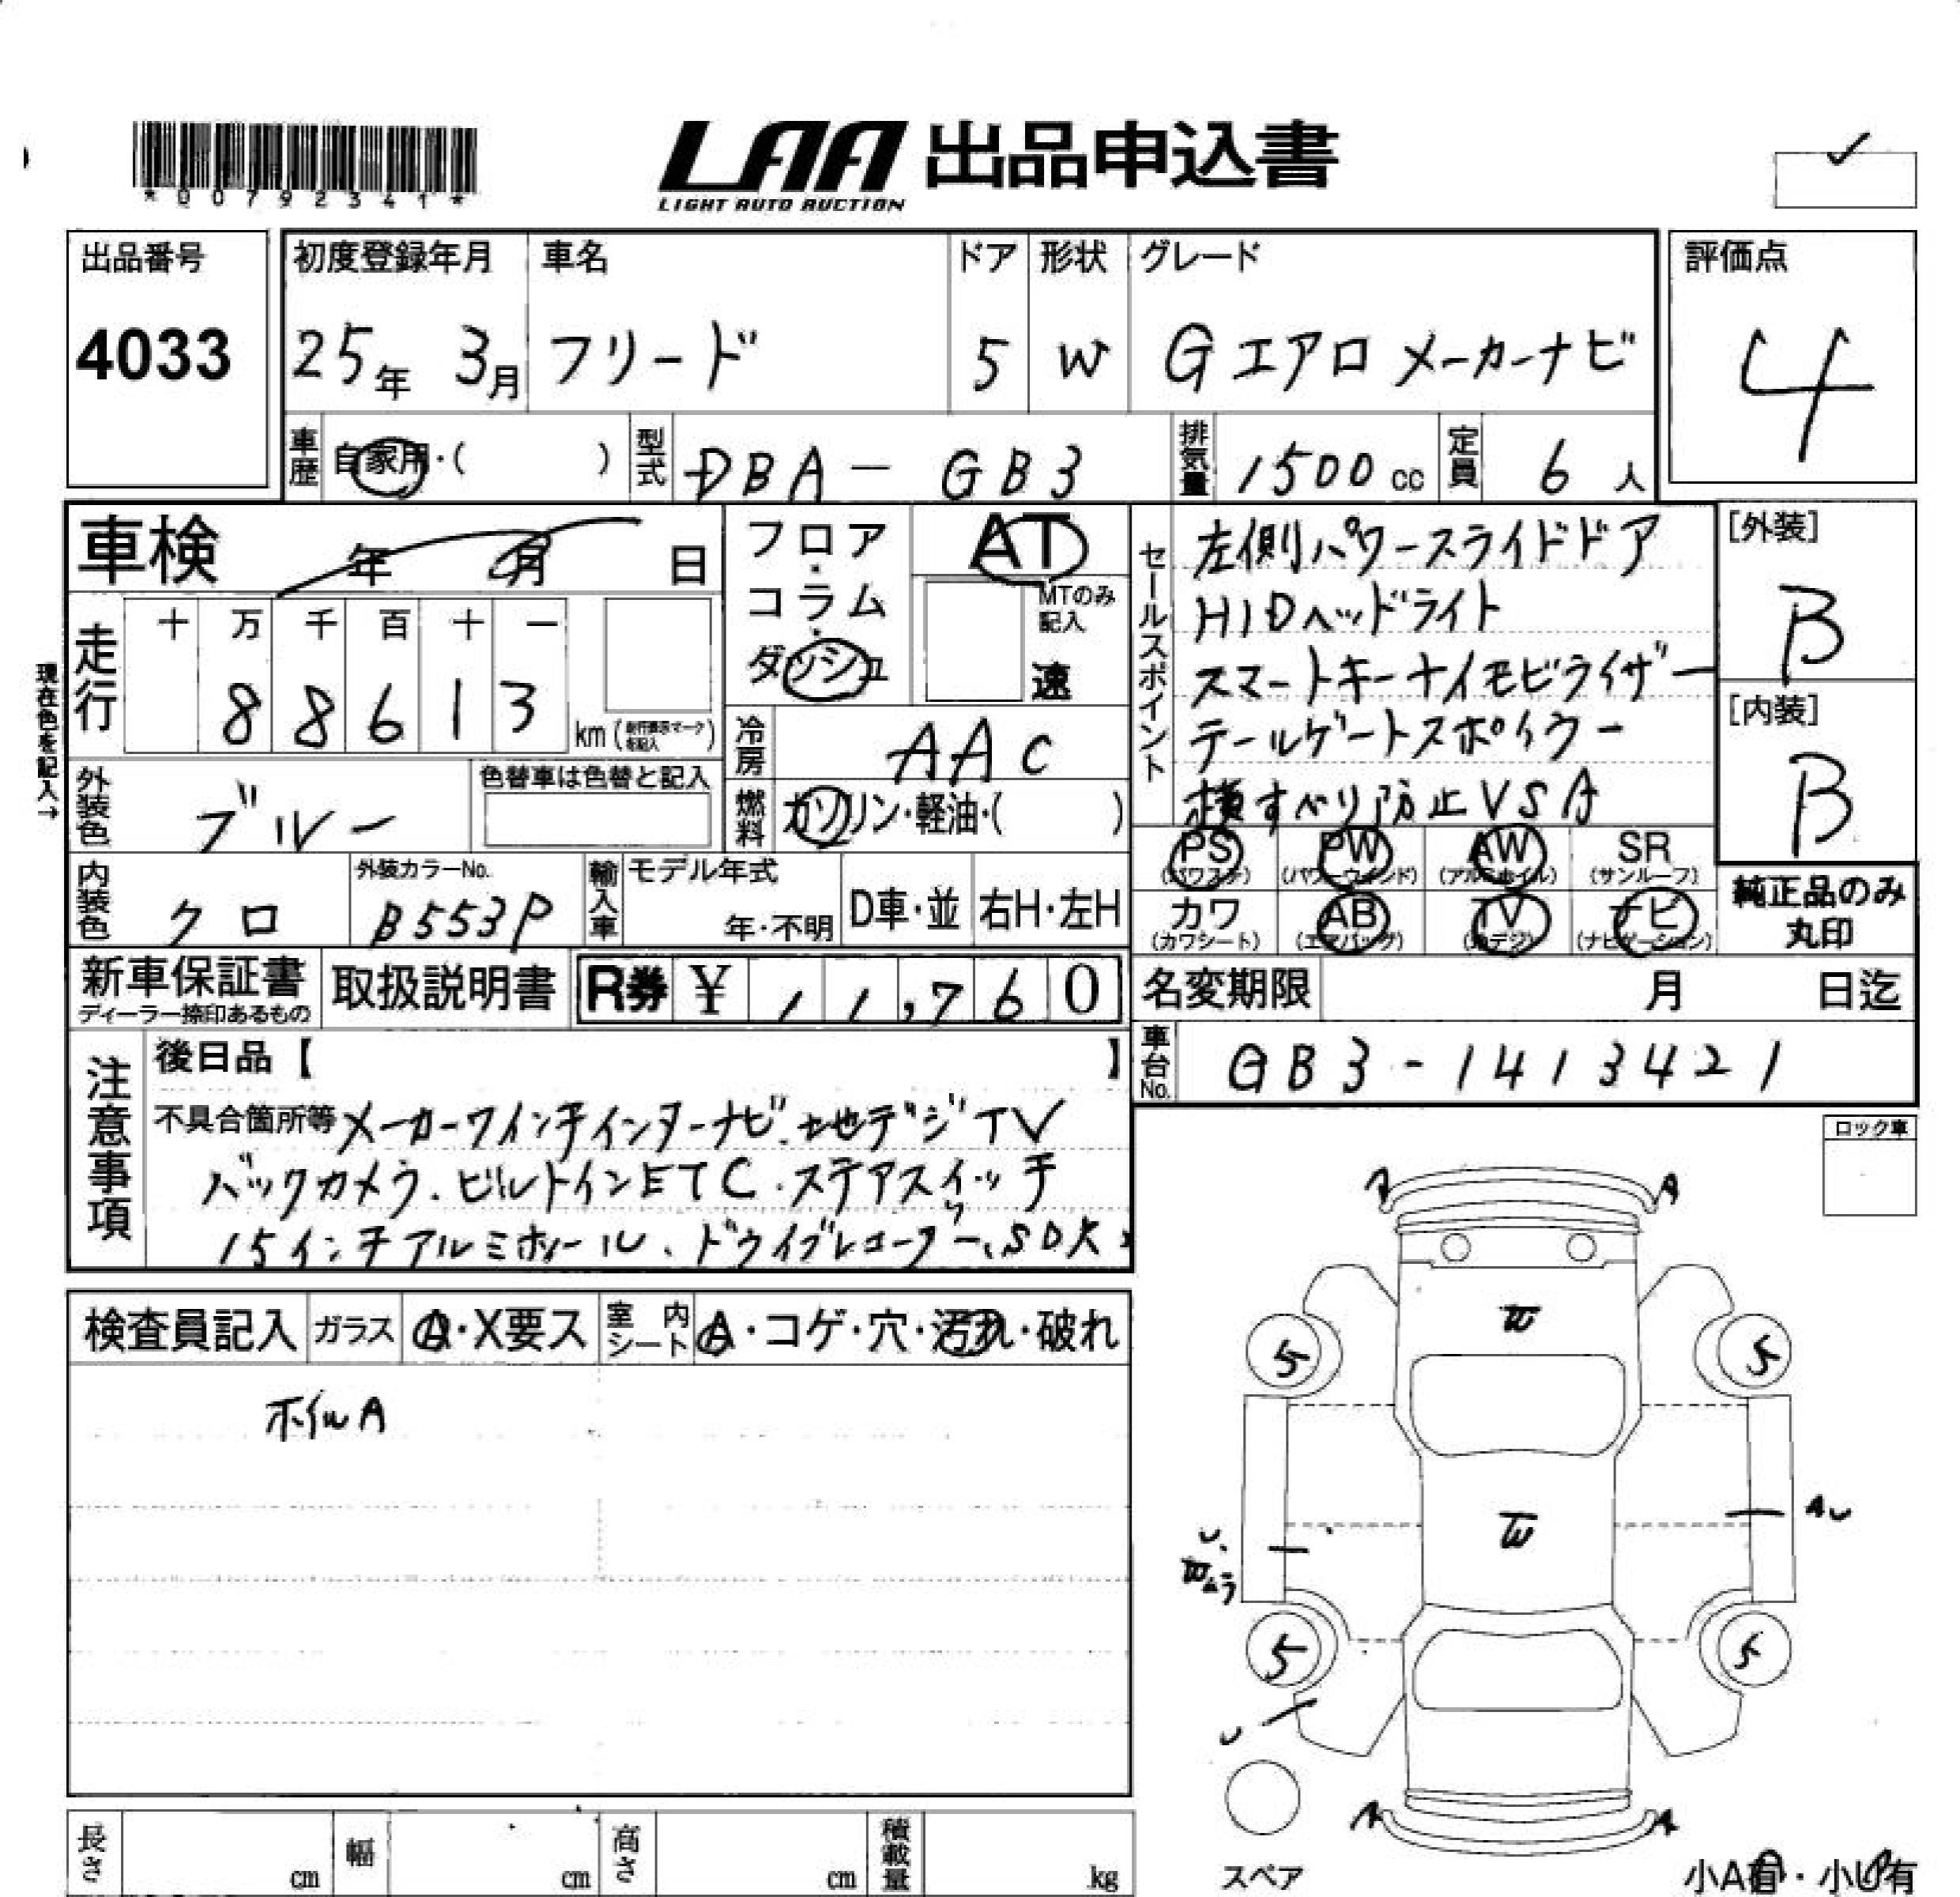 *00792341*
LAA 出品申込書
LIGHT AUTO AUCTION
出品番号
4033
初度登録年月
25年 3月
車名
フリード
ドア
5
形状
W
グレード
Gエアロ メーカーナビ
評価点
4
車歴 自家用・( )
型式 DBA-GB3
排気量 1500cc
定員 6人
車検 年 月 日
フロア・コラム・ダッシュ
AT
MTのみ記入
速
走行
十 万 千 百 十 一
88613
km(走行表示マークを記入)
現在色を記入→
冷房 AAC
外装色 ブルー
色替車は色替と記入
燃料 ガソリン・軽油・( )
内装色 クロ
外装カラーNo. B553P
輸入車
モデル年式
年・不明
D車・並
右H・左H
セールスポイント
左側パワースライドドア
HIDヘッドライト
スマートキーナイモビライザー
テールゲートスポイラー
横すべり防止VSA
[外装]
B
[内装]
B
PS PW AW SR
(パワステ) (パワーウインド) (アルミホイル) (サンルーフ)
カワ AB TV ナビ
(カワシート) (エアバッグ) (地デジ) (ナビゲーション)
純正品のみ
丸印
新車保証書
ディーラー捺印あるもの
取扱説明書
R券 ¥11,760
名変期限 月 日迄
車台No. GB3-1413421
注意事項
後日品【 】
不具合箇所等 メーカーワインチインターナビ、地デジTV
バックカメラ、ビルトインETC、ステアスイッチ
15インチアルミホイール、ドライブレコーダー、SD欠
ロック車
検査員記入
ガラス A・X要ス
室内シート A・コゲ・穴・汚れ・破れ
ホイルA
A A
W
5 5
W
U AU
Wムラ
5 5
U
A A
スペア
小A有・小U有
長さ cm
幅 cm
高さ cm
積載量 kg